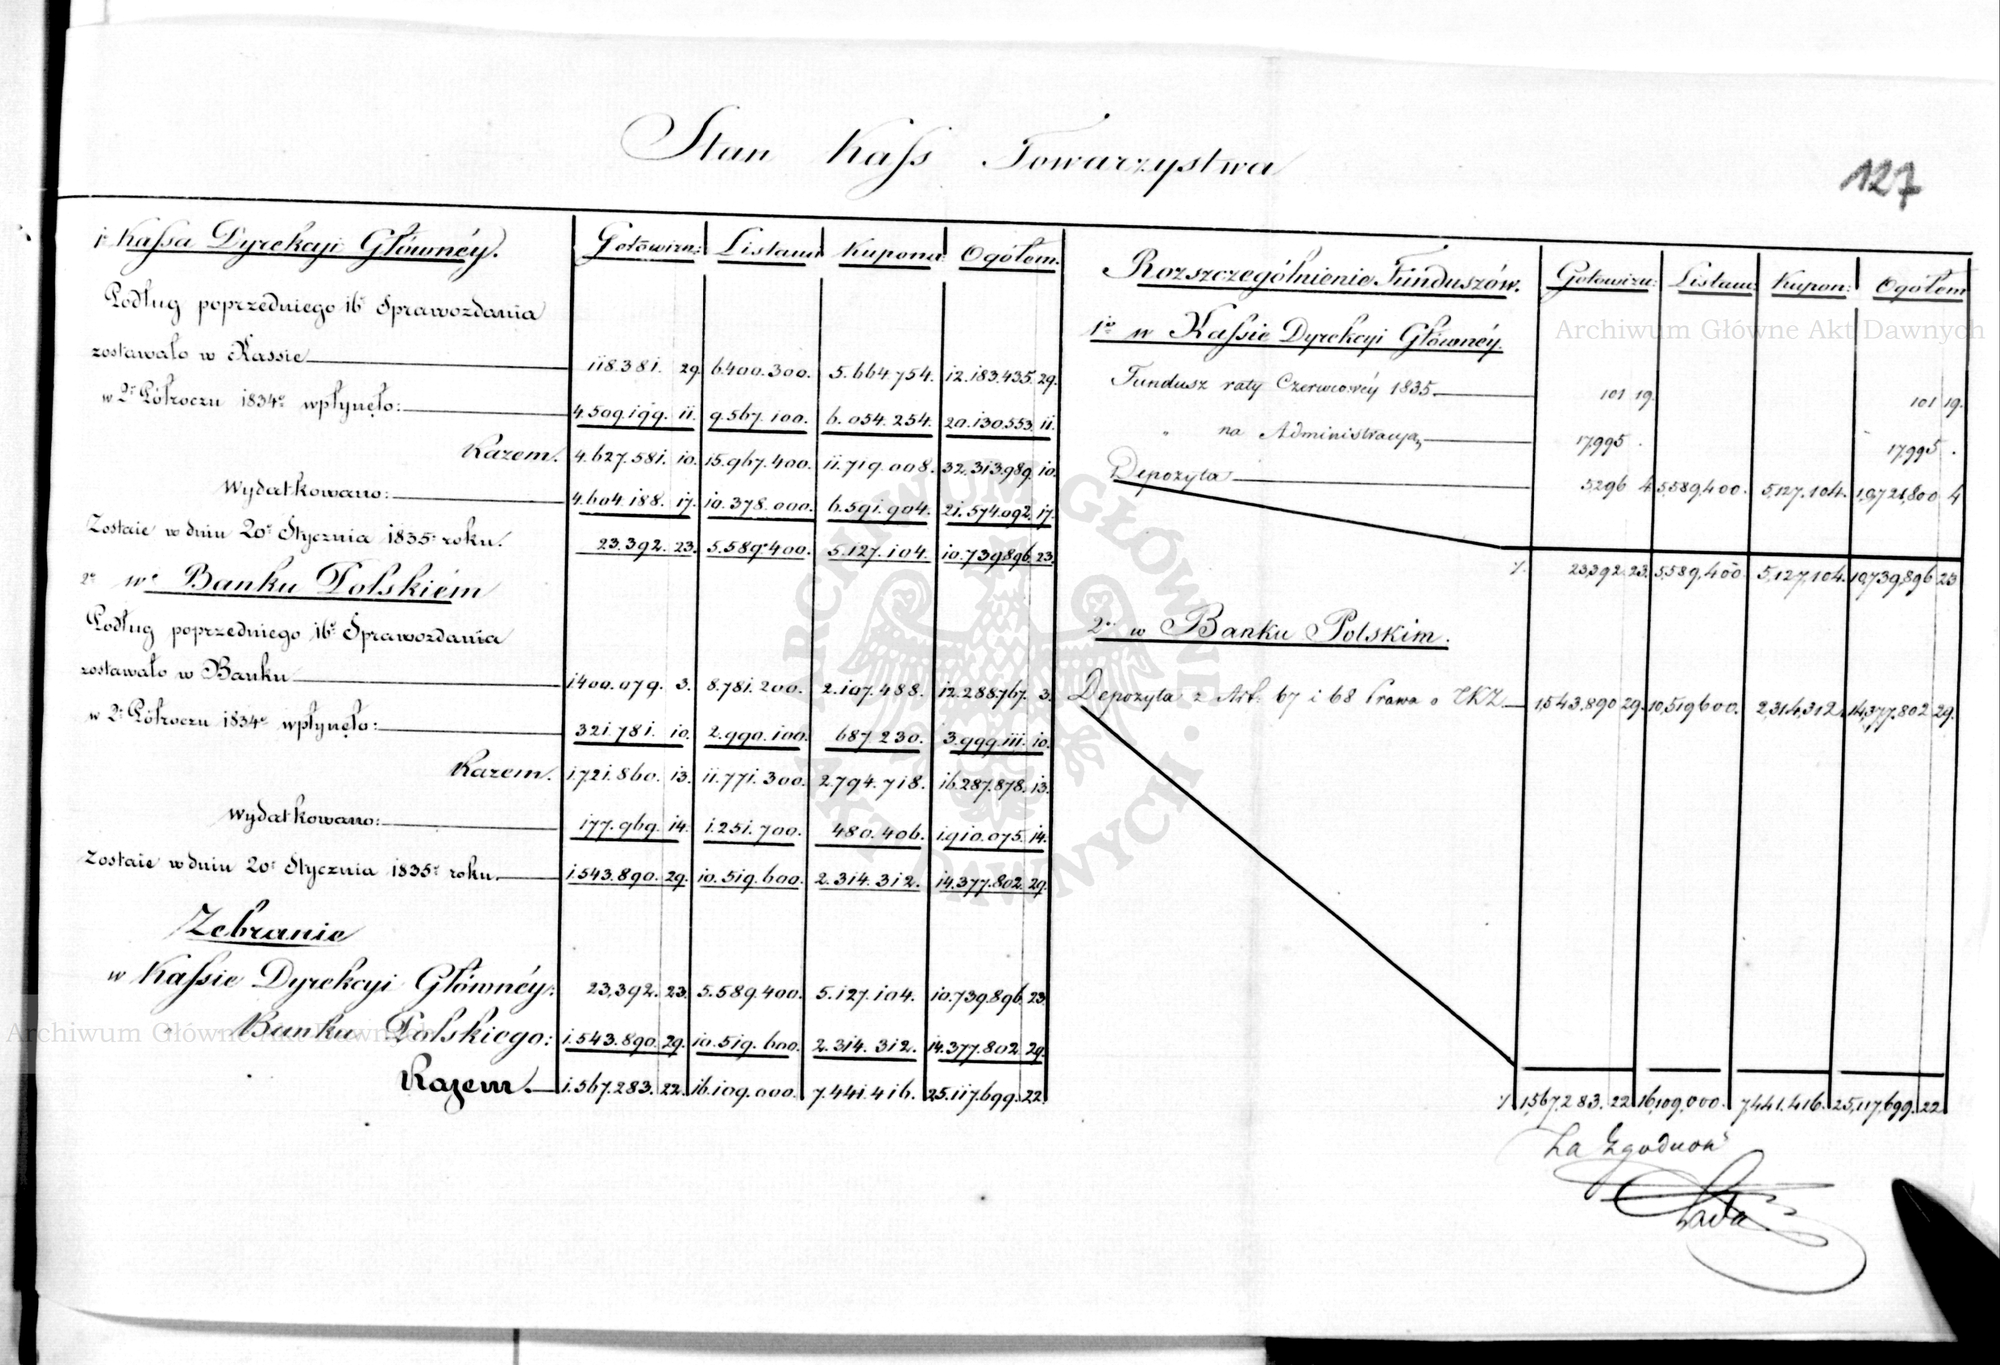 Stan Kass Towarzystwa
127
1º Kassa Dyrekcyi Głównéy. Gotowizną: Listami Kuponami Ogółem.
Podług poprzedniego 16º Sprawozdania
zostawało w Kassie 118.381. 29. 6.400.300. 5.664.754. 12.183.435. 29.
w 2m Półroczu 1834º wpłynęło: 4.509.199. 11. 9.567.100. 6.054.254. 20.130.553. 11.
Razem. 4.627.581. 10. 15.967.400. 11.719.008. 32.313.989. 10.
Wydatkowano: 4.604.188. 17. 10.378.000. 6.591.904. 21.574.092. 17.
Zostaie w dniu 20º Stycznia 1835º roku. 23.392. 23. 5.589.400. 5.127.104. 10.739.896. 23.
2º w Banku Polskiém
Podług poprzedniego 16º Sprawozdania
zostawało w Banku 1.400.079. 3. 8.781.200. 2.107.488. 12.288.767. 3.
w 2m Półroczu 1834º wpłynęło: 321.781. 10. 2.990.100. 687.230. 3.999.111. 10.
Razem. 1.721.860. 13. 11.771.300. 2.794.718. 16.287.878. 13.
Wydatkowano: 177.969. 14. 1.251.700. 480.406. 1.910.075. 14.
Zostaie w dniu 20º Stycznia 1835º roku. 1.543.890. 29. 10.519.600. 2.314.312. 14.377.802. 29.
Zebranie
w Kassie Dyrekcyi Głównéy: 23,392. 23. 5.589.400. 5.127.104. 10.739.896. 23.
" Banku Polskiego: 1.543.890. 29. 10.519.600. 2.314.312. 14.377.802. 29.
Razem. 1.567.283. 22. 16.109.000. 7.441.416. 25.117.699. 22.
Rozszczególnienie Funduszów. Gotowizn: Listam: Kupon: Ogółem
1º w Kassie Dyrekcyi Głównéy.
Fundusz raty Czerwcowéy 1835. 101 19. 101 19.
" na Administracyą 17,995 . 17,995 .
Depozyta 5,296 4. 5,589,400. 5,127,104. 10,721,800 4
/. 23,392 23. 5,589,400. 5,127,104. 10,739,896 23
2º w Banku Polskim.
Depozyta z Art. 67 i 68 Prawa o TKZ 1,543,890 29. 10,519,600. 2,314,312. 14,377,802 29.
/. 1,567,283. 22 16,109,000. 7,441,416. 25,117,699. 22
Za Zgodność
Archiwum Główne Akt Dawnych
Archiwum Główne Akt Dawnych
ARCHIWUM GŁÓWNE AKT DAWNYCH